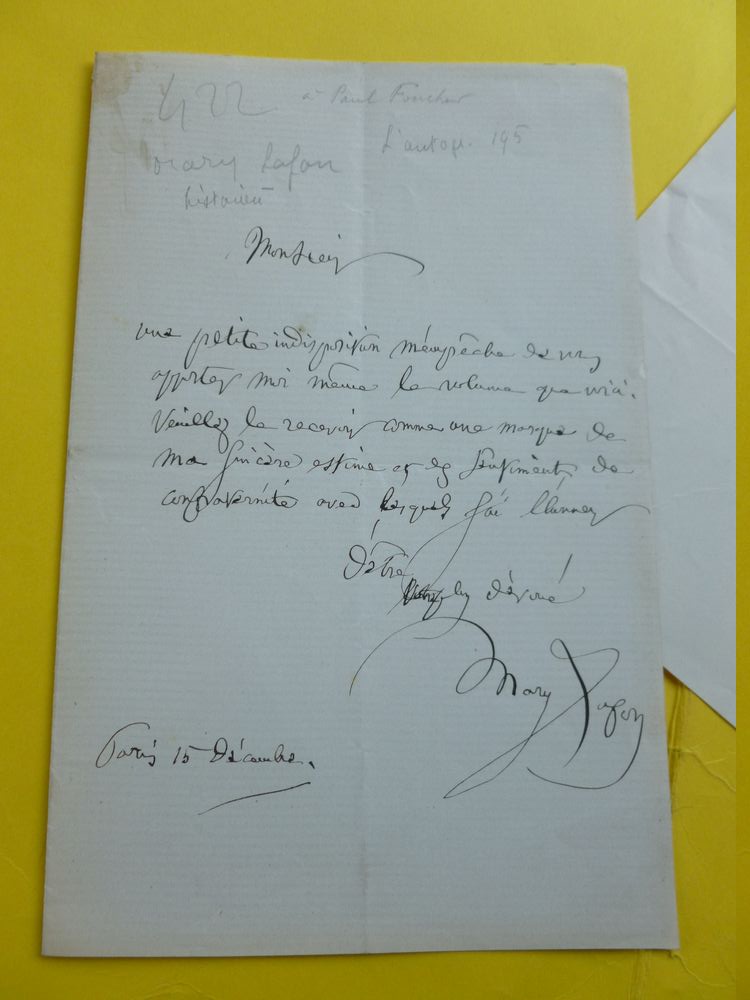 422 à Paul Foucher
L'autogr. 195
Mary Lafon
historien
Monsieur
une petite indisposition m'empêche de vous
apporter moi même le volume que voici.
Veuillez le recevoir comme une marque de
ma sincère estime et des sentiments de
confraternité avec lesquels j'ai l'honneur
d'être
votre plus dévoué
Mary Lafon
Paris 15 Décembre.